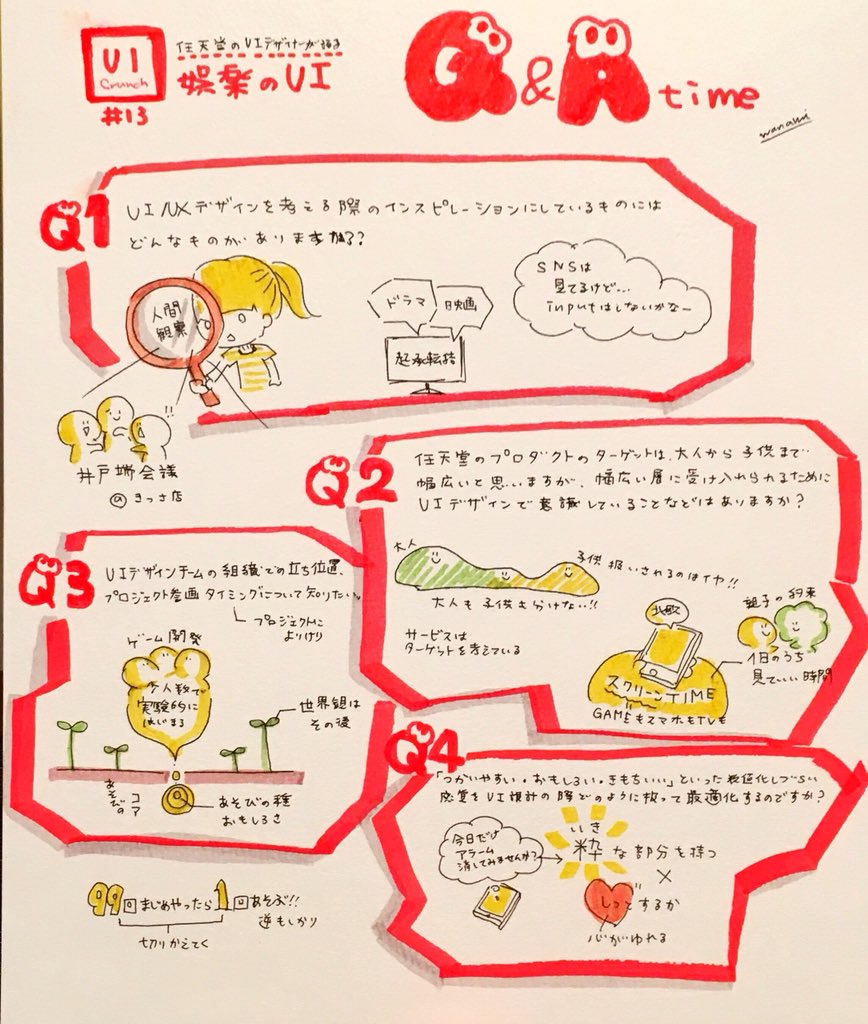 UI
Crunch
#13
任天堂のUIデザイナーが語る
娯楽のUI
Q&A time
wanami
Q1
UI/UXデザインを考える際のインスピレーションにしているものには
どんなものがありますか?
人間
観察
ドラマ
映画
起承転結
SNSは
見てるけど…
inputはしないかなー
!!
井戸端会議
@きっさ店
Q2
任天堂のプロダクトのターゲットは、大人から子供まで
幅広いと思いますが、幅広い層に受け入れられるために
UIデザインで意識していることなどはありますか?
大人
子供扱いされるのはイヤ!!
大人も子供も分けない!!
サービスは
ターゲットを考えている
比較
親子の約束
スクリーンTIME
GAMEもスマホもTVも
1日のうち
見ていい時間
Q3
UIデザインチームの組織での立ち位置、
プロジェクト参画タイミングについて知りたい。
プロジェクトに
よりけり
ゲーム開発
少人数で
実験的に
はじまる
世界観は
その後
あそびの
コア
あそびの種
おもしろさ
99回まじめやったら1回あそぶ!!
逆もしかり
切りかえてく
Q4
「つかいやすい・おもしろい・きもちいい」といった数値化しづらい
感覚をUI設計の際どのように扱って最適化するのですか?
今日だけ
アラーム
消してみませんか?
いき
粋な部分を持つ
×
しっとするか
心がゆれる